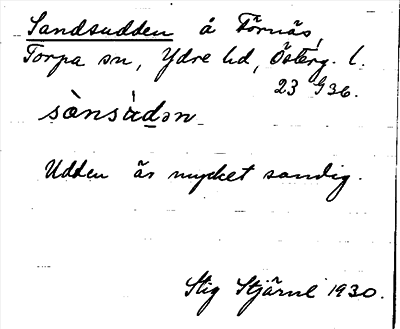 Sandsudden å Törnäs,
Torpa sn, Ydre hd, Österg. l.
23 G36.
sànsùdən
Udden är mycket sandig.
Stig Stjärne 1930.